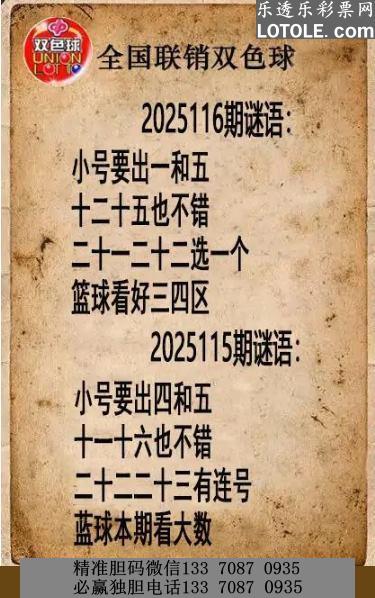 乐透乐彩票网
LOTOLE.COM
双色球
UNION
LOTTO
全国联销双色球
2025116期谜语:
小号要出一和五
十二十五也不错
二十一二十二选一个
篮球看好三四区
2025115期谜语:
小号要出四和五
十一十六也不错
二十二二十三有连号
蓝球本期看大数
精准胆码微信133 7087 0935
必赢独胆电话133 7087 0935